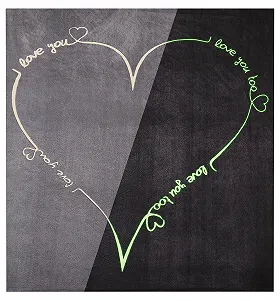 love you
love you too
love you
love you too